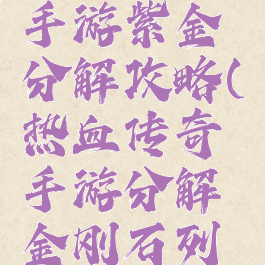 手游紫金
分解攻略(
热血传奇
手游分解
金刚石列